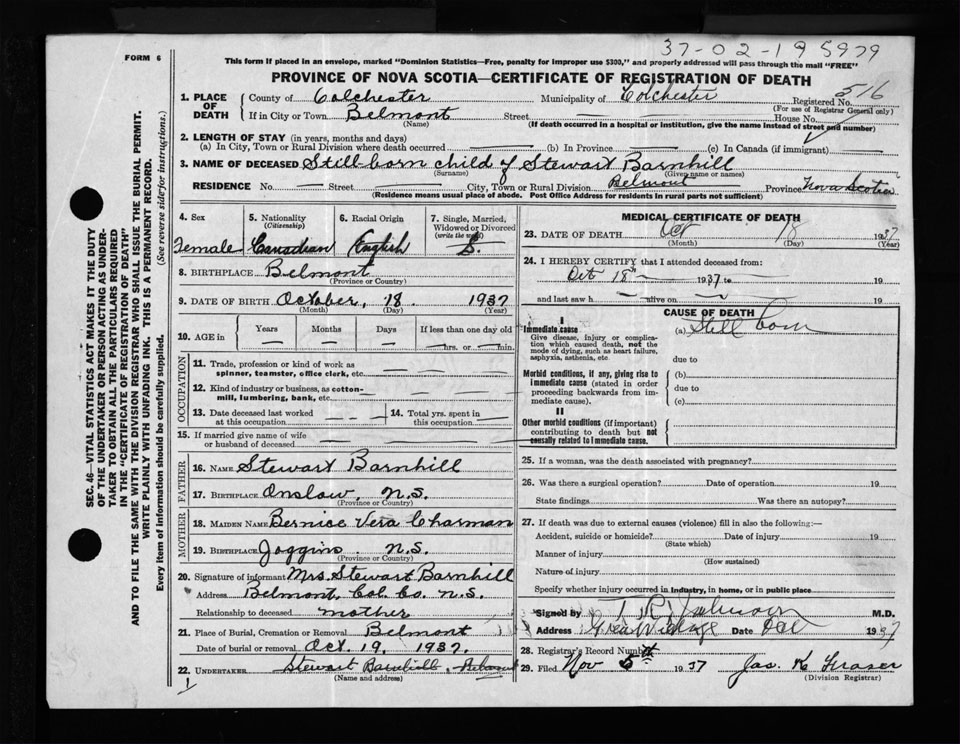 37-02-195979
FORM 6
This form if placed in an envelope, marked "Dominion Statistics—Free, penalty for improper use $300," and properly addressed will pass through the mail "FREE"
PROVINCE OF NOVA SCOTIA—CERTIFICATE OF REGISTRATION OF DEATH
516
SEC. 46—VITAL STATISTICS ACT MAKES IT THE DUTY
OF THE UNDERTAKER OR PERSON ACTING AS UNDER-
TAKER TO OBTAIN ALL THE PARTICULARS REQUIRED
IN THE "CERTIFICATE OF REGISTRATION OF DEATH"
AND TO FILE THE SAME WITH THE DIVISION REGISTRAR WHO SHALL ISSUE THE BURIAL PERMIT.
WRITE PLAINLY WITH UNFADING INK. THIS IS A PERMANENT RECORD.
Every item of information should be carefully supplied. (See reverse side for instructions.)
1. PLACE OF DEATH
County of Colchester Municipality of Colchester Registered No.
(For use of Registrar General only)
If in City or Town Belmont Street House No.
(Name) (If death occurred in a hospital or institution, give the name instead of street and number)
2. LENGTH OF STAY (in years, months and days)
(a) In City, Town or Rural Division where death occurred — (b) In Province — (c) In Canada (if immigrant) —
3. NAME OF DECEASED Still-born child of Stewart Barnhill
(Surname) (Given name or names)
RESIDENCE No. — Street — City, Town or Rural Division Belmont Province Nova Scotia
(Residence means usual place of abode. Post Office Address for residents in rural parts not sufficient)
4. Sex 5. Nationality (Citizenship) 6. Racial Origin 7. Single, Married, Widowed or Divorced (write the word)
Female Canadian English S.
8. BIRTHPLACE Belmont
(Province or Country)
9. DATE OF BIRTH October, 18. 1937
(Month) (Day) (Year)
10. AGE in Years Months Days If less than one day old
— — — — hrs. or — min.
OCCUPATION
11. Trade, profession or kind of work as
spinner, teamster, office clerk, etc. — — — —
12. Kind of industry or business, as cotton-
mill, lumbering, bank, etc. — — — —
13. Date deceased last worked
at this occupation — —
14. Total yrs. spent in
this occupation —
15. If married give name of wife
or husband of deceased — — — —
FATHER
16. NAME Stewart Barnhill
17. BIRTHPLACE Onslow, N.S.
(Province or Country)
MOTHER
18. MAIDEN NAME Bernice Vera Charman
19. BIRTHPLACE Joggins N.S.
(Province or Country)
20. Signature of informant Mrs. Stewart Barnhill
Address Belmont, Col. Co. N.S.
Relationship to deceased mother
21. Place of Burial, Cremation or Removal Belmont
Date of burial or removal Oct. 19, 1937.
22. UNDERTAKER Stewart Barnhill
(Name and address)
1
MEDICAL CERTIFICATE OF DEATH
23. DATE OF DEATH Oct 18 1937
(Month) (Day) (Year)
24. I HEREBY CERTIFY that I attended deceased from:
Oct 18th 1937 to — 19
and last saw h — alive on — 19
CAUSE OF DEATH
I
Immediate cause
Give disease, injury or complica-
tion which caused death, not the
mode of dying, such as heart failure,
asphyxia, asthenia, etc.
(a) Still born
due to
Morbid conditions, if any, giving rise to
immediate cause (stated in order
proceeding backwards from im-
mediate cause).
(b)
due to
(c)
II
Other morbid conditions (if important)
contributing to death but not
causally related to immediate cause.
25. If a woman, was the death associated with pregnancy?
26. Was there a surgical operation? Date of operation 19
State findings Was there an autopsy?
27. If death was due to external causes (violence) fill in also the following:—
Accident, suicide or homicide? Date of injury 19
(State which)
Manner of injury
(How sustained)
Nature of injury
Specify whether injury occurred in industry, in home, or in public place
Signed by T. R. Johnson M.D.
Address Great Village Date Oct 1937
28. Registrar's Record Number
29. Filed Nov 5th 1937 Jas. K Fraser
(Division Registrar)